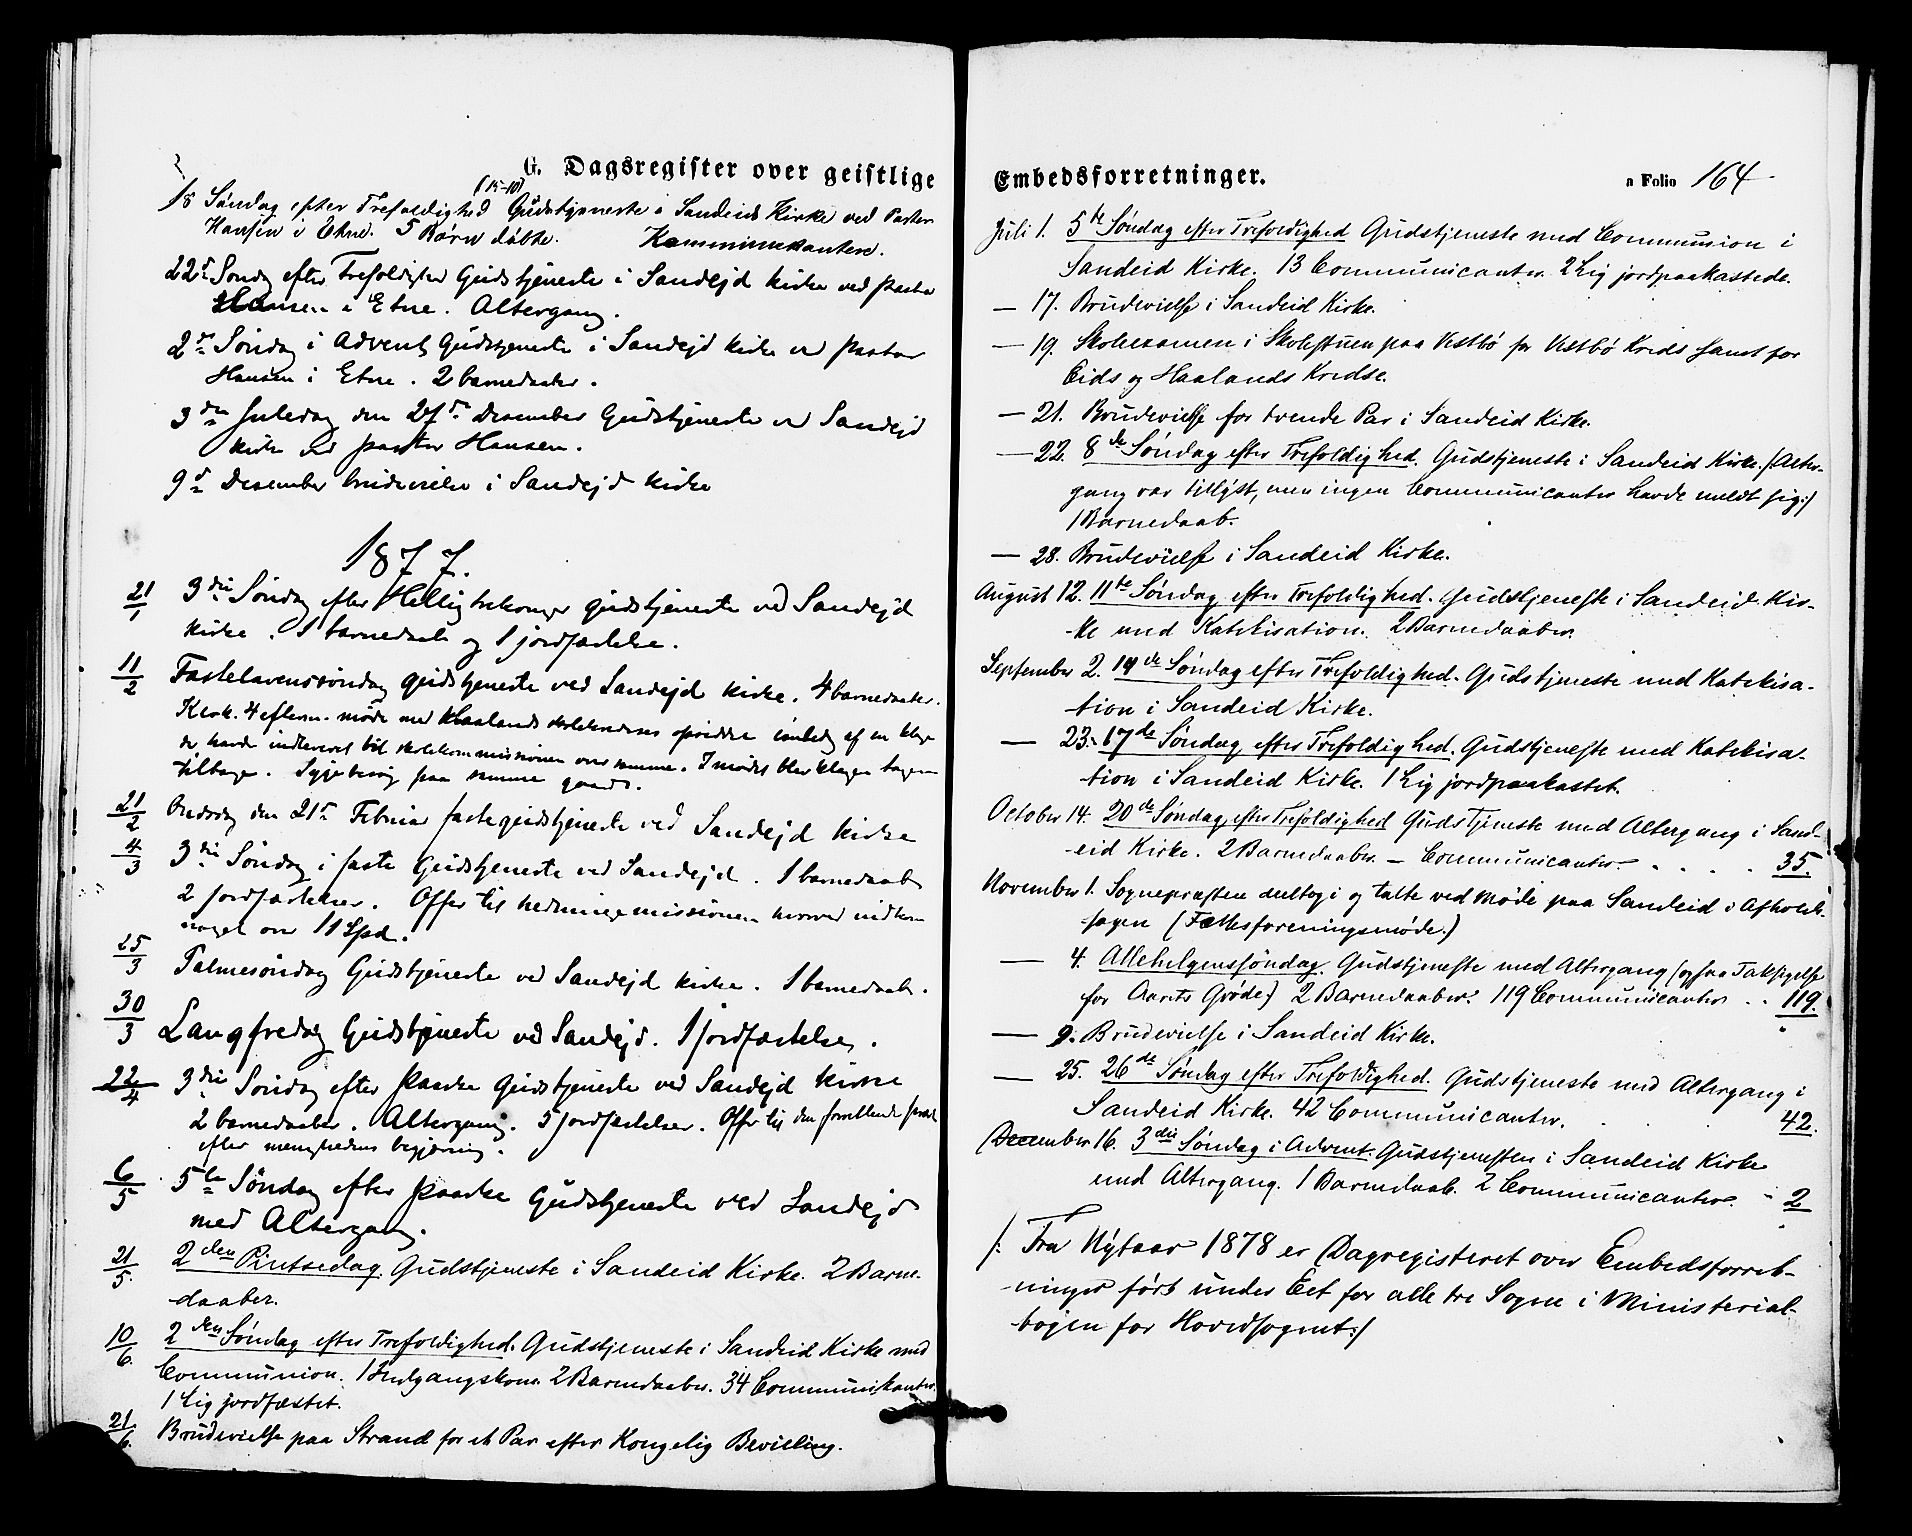 G. Dagsregister over geistlige
(15-10)
18 Søndag efter Trefoldighed Gudstjeneste i Sandeid Kirke ved Pastor
Hansen i Etne. 5 Børn døbte. Kommunikantere.
22de Sønd. efter Trefoldighed Gudstjeneste i Sandejd kirke ved Pastor
Hansen i Etne. Altergang.
2den Søndag i Advent Gudstjeneste i Sandejd kirke ved Pastor
Hansen i Etne. 2 barnedaaber.
3die Juledag den 27de Desember Gudstjeneste ved Sandejd
kirke ved pastor Hansen.
9de Desember brudevielse i Sandejd kirke
1877.
21/1 3die Søndag efter Helligtrekonger gudstjeneste ved Sandejd
kirke. 1 barnedaab og 1 jordfæstelse.
11/2 Fastelavenssøndag gudstjeneste ved Sandejd kirke. 4 barnedaaber.
Klok. 4 efterm. møde med Haalands skolekredses i anledng af en klage
de havde indleveret til skolekommissionen over samme. I mødet blev klagen tagen
tilbage. Sygebesøg paa samme gaard.
21/2 Onsdag den 21de Februar fastegudstjeneste ved Sandejd kirke
4/3 3die Søndag i faste Gudstjeneste ved Sandejd. 1 barnedaab
2 jordfæstelser. Offer til hedningemissionen hvorved indkom
noget over 11 Spd.
25/3 Palmesøndag Gudstjeneste ved Sandejd kirke. 1 barnedaab.
30/3 Langfredag Gudstjeneste ved Sandejd. 1 jordfæstelse.
22/4 3die Søndag efter Paaske Gudstjeneste ved Sandejd kirke
2 barnedaaber. Altergang. 5 jordfæstelser. Offer til den
efter menighedens begjæring.
6/5 5te Søndag efter Paaske Gudstjeneste ved Sandejd
med Altergang.
21/5 2den Pintsedag. Gudstjeneste i Sandeid Kirke. 2 Barne-
daaber.
10/6. 2den Søndag efter Trefoldighed. Gudstjeneste i Sandeid Kirke med
Communion. 1 Indgangskone. 2 Barnedaaber. 34 Communikanter.
1 Lig jordfæstet.
21/6. Brudevielse paa Strand for et Par efter Kongelig Bevilling.
Embedsforretninger.
a Folio 164
Juli 1. 5te Søndag efter Trefoldighed Gudstjeneste med Communion i
Sandeid Kirke. 13 Communicanter. 2 Lig jordpaakastede.
— 17. Brudevielse i Sandeid Kirke.
— 19. Skolexamen i Skolestuen paa Vestbø for Vestbø Kreds samt for
Eids og Haalands Kredse.
— 21. Brudevielse for tvende Par i Sandeid Kirke.
— 22. 8de Søndag efter Trefoldighed. Gudstjeneste i Sandeid Kirke. (Alter-
gang var tillyst, men ingen Communicanter havde meldt sig:)
1 Barnedaab.
— 28. Brudevielse i Sandeid Kirke.
August 12. 11te Søndag efter Trefoldighed. Gudstjeneste i Sandeid Kir-
-ke med Katekisation. 2 Barnedaaber.
September 2. 14de Søndag efter Trefoldighed. Gudstjeneste med Katekisa-
-tion i Sandeid Kirke.
— 23. 17de Søndag efter Trefoldighed. Gudstjeneste med Katekisa-
-tion i Sandeid Kirke. 1 Lig jordpaakastet.
October 14. 20de Søndag efter Trefoldighed Gudstjeneste med Altergang i Sand-
eid Kirke. 2 Barnedaaber. — Communicanter. . . . . 35.
November 1. Sognepræsten deltog i og talte ved Møde paa Sandeid i Afholds-
sagen (Fællesforeningsmøde.)
— 4. Allehelgenssøndag. Gudstjeneste med Altergang (ogsaa Taksigelse
for Aarets Grøde.) 2 Barnedaaber. 119 Communicanter . . 119.
— 9. Brudevielse i Sandeid Kirke.
— 25. 26de Søndag efter Trefoldighed. Gudstjeneste med Altergang i
Sandeid Kirke. 42 Communicanter. . 42.
December 16. 3die Søndag i Advent. Gudstjenesten i Sandeid Kirke
med Altergang. 1 Barnedaab. 2 Communicanter. - 2
/: Fra Nytaar 1878 er Dagregisteret over Embedsforret-
-ninger ført under Eet for alle tre Sogne i Ministerial-
-bogen for Hovedsognet:/